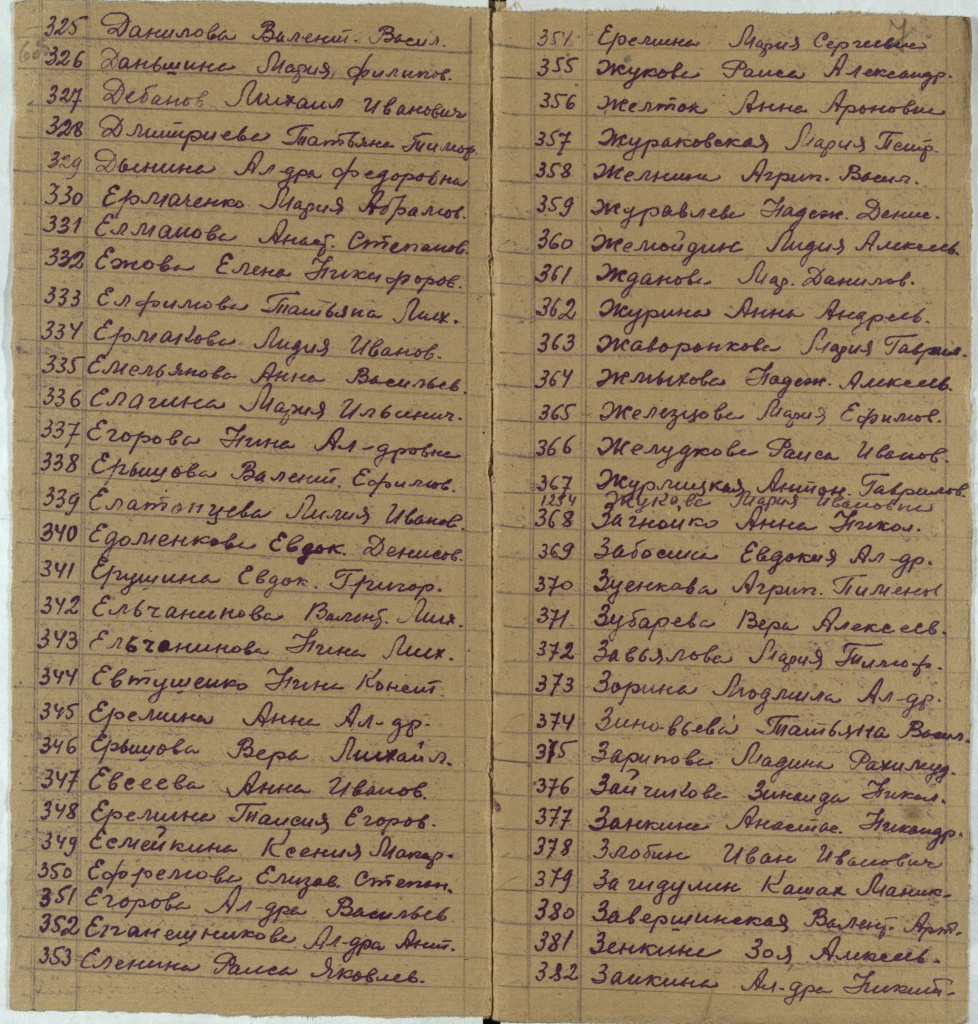 325 Данилова Валент. Васил.
326 Даньшина Мария Филипов.
327 Дебанов Михаил Иванович
328 Дмитриева Татьяна Тимоф.
329 Дынина Ал-дра Федоровна
330 Ермаченко Мария Абрамов.
331 Елманова Анаст. Степанов.
332 Ежова Елена Никифоров.
333 Елфимова Татьяна Мих.
334 Ермакова Лидия Иванов.
335 Емельянова Анна Васильев.
336 Елагина Мария Ильинич.
337 Егорова Нина Ал-дровна
338 Ершова Валент. Ефимов.
339 Елатонцева Лилия Иванов.
340 Едоменкова Евдок. Денисов.
341 Ерушина Евдок. Григор.
342 Ельчанинова Валент. Мих.
343 Ельчанинова Нина Мих.
344 Евтушенко Нина Конст.
345 Еремина Анна Ал-др.
346 Ершова Вера Михайл.
347 Евсеева Анна Иванов.
348 Еремина Таисия Егоров.
349 Есмейкина Ксения Макар.
350 Ефремова Елизав. Степан.
351 Егорова Ал-дра Васильев
352 Ал-дра Ант.
353 Еленина Раиса Яковлев.
7
354 Еремина Мария Сергеевна
355 Жукова Раиса Александр.
356 Желток Анна Ароновна
357 Жураковская Мария Петр.
358 Желнина Агрип. Васил.
359 Журавлева Надеж. Денис.
360 Жемойдин Лидия Алексеев.
361 Жданова Мар. Данилов.
362 Журина Анна Андреев.
363 Жаворонкова Мария Гаврил.
364 Жмыхова Надеж. Алексеев.
365 Железцова Мария Ефимов.
366 Желудкова Раиса Иванов.
367 Журлицкая Антон. Гаврилов.
1254 Жукова Мария Ивановна
368 Загнойко Анна Никол.
369 Евдокия Ал-др.
370 Зуенкова Агрип. Пименов
371 Зубарева Вера Алексеев.
372 Завьялова Мария Тимоф.
373 Зорина Людмила Ал-др.
374 Зиновьева Татьяна Васил.
375 Зарипова Мадина
376 Зайчикова Зинаида Никол.
377 Занкина Анастас. Никандр.
378 Злобин Иван Иванович
379 Загидулин
380 Завершинская Валент. Арт.
381 Зенкина Зоя Алексеев.
382 Заикина Ал-дра Никит.